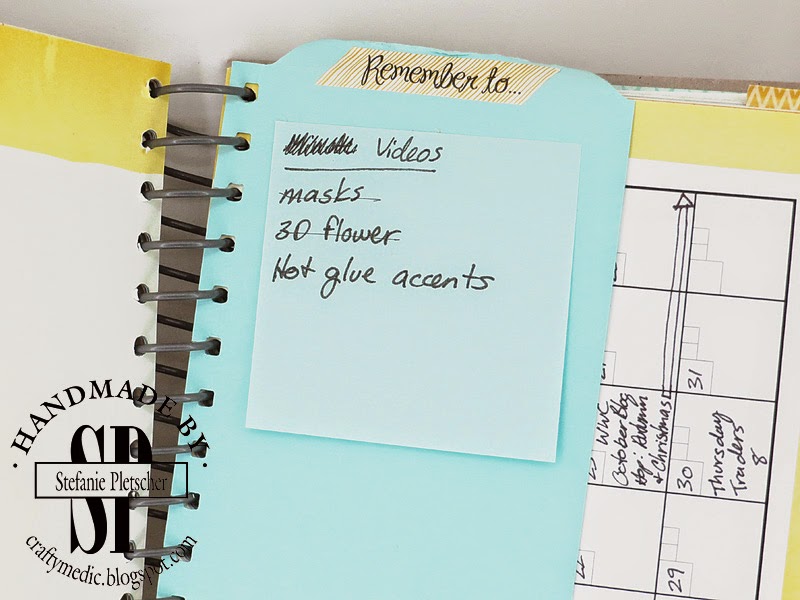 Remember to...
Videos
masks
3D flower
Hot glue accents
31
WWC
October Blog
Hop:
+ Christmas
30
Thursday
Traders
8
29
HANDMADE BY
SP
Stefanie Pletscher
craftymedic.blogspot.com